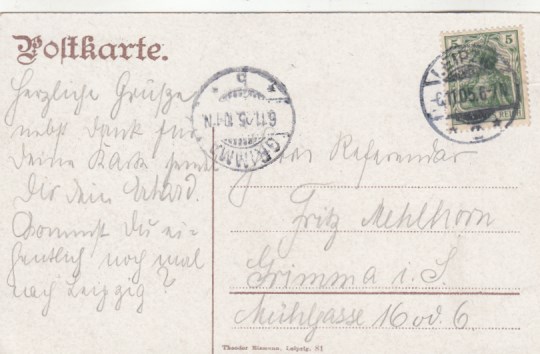 Postkarte.
Herzliche Grüße
nebst Dank für
Deine Karte sendet
Dir dein Erhard.
Kommst Du ei-
gentlich noch mal
nach Leipzig?
5 5
LEIPZIG
6.11.05.6-7N.
GRIMMA
6.11.05.10-11N
b
Referendar
Fritz Mehlhorn
Grimma i. S.
Mühlgasse 16 od. 6.
Theodor Leipzig. 81